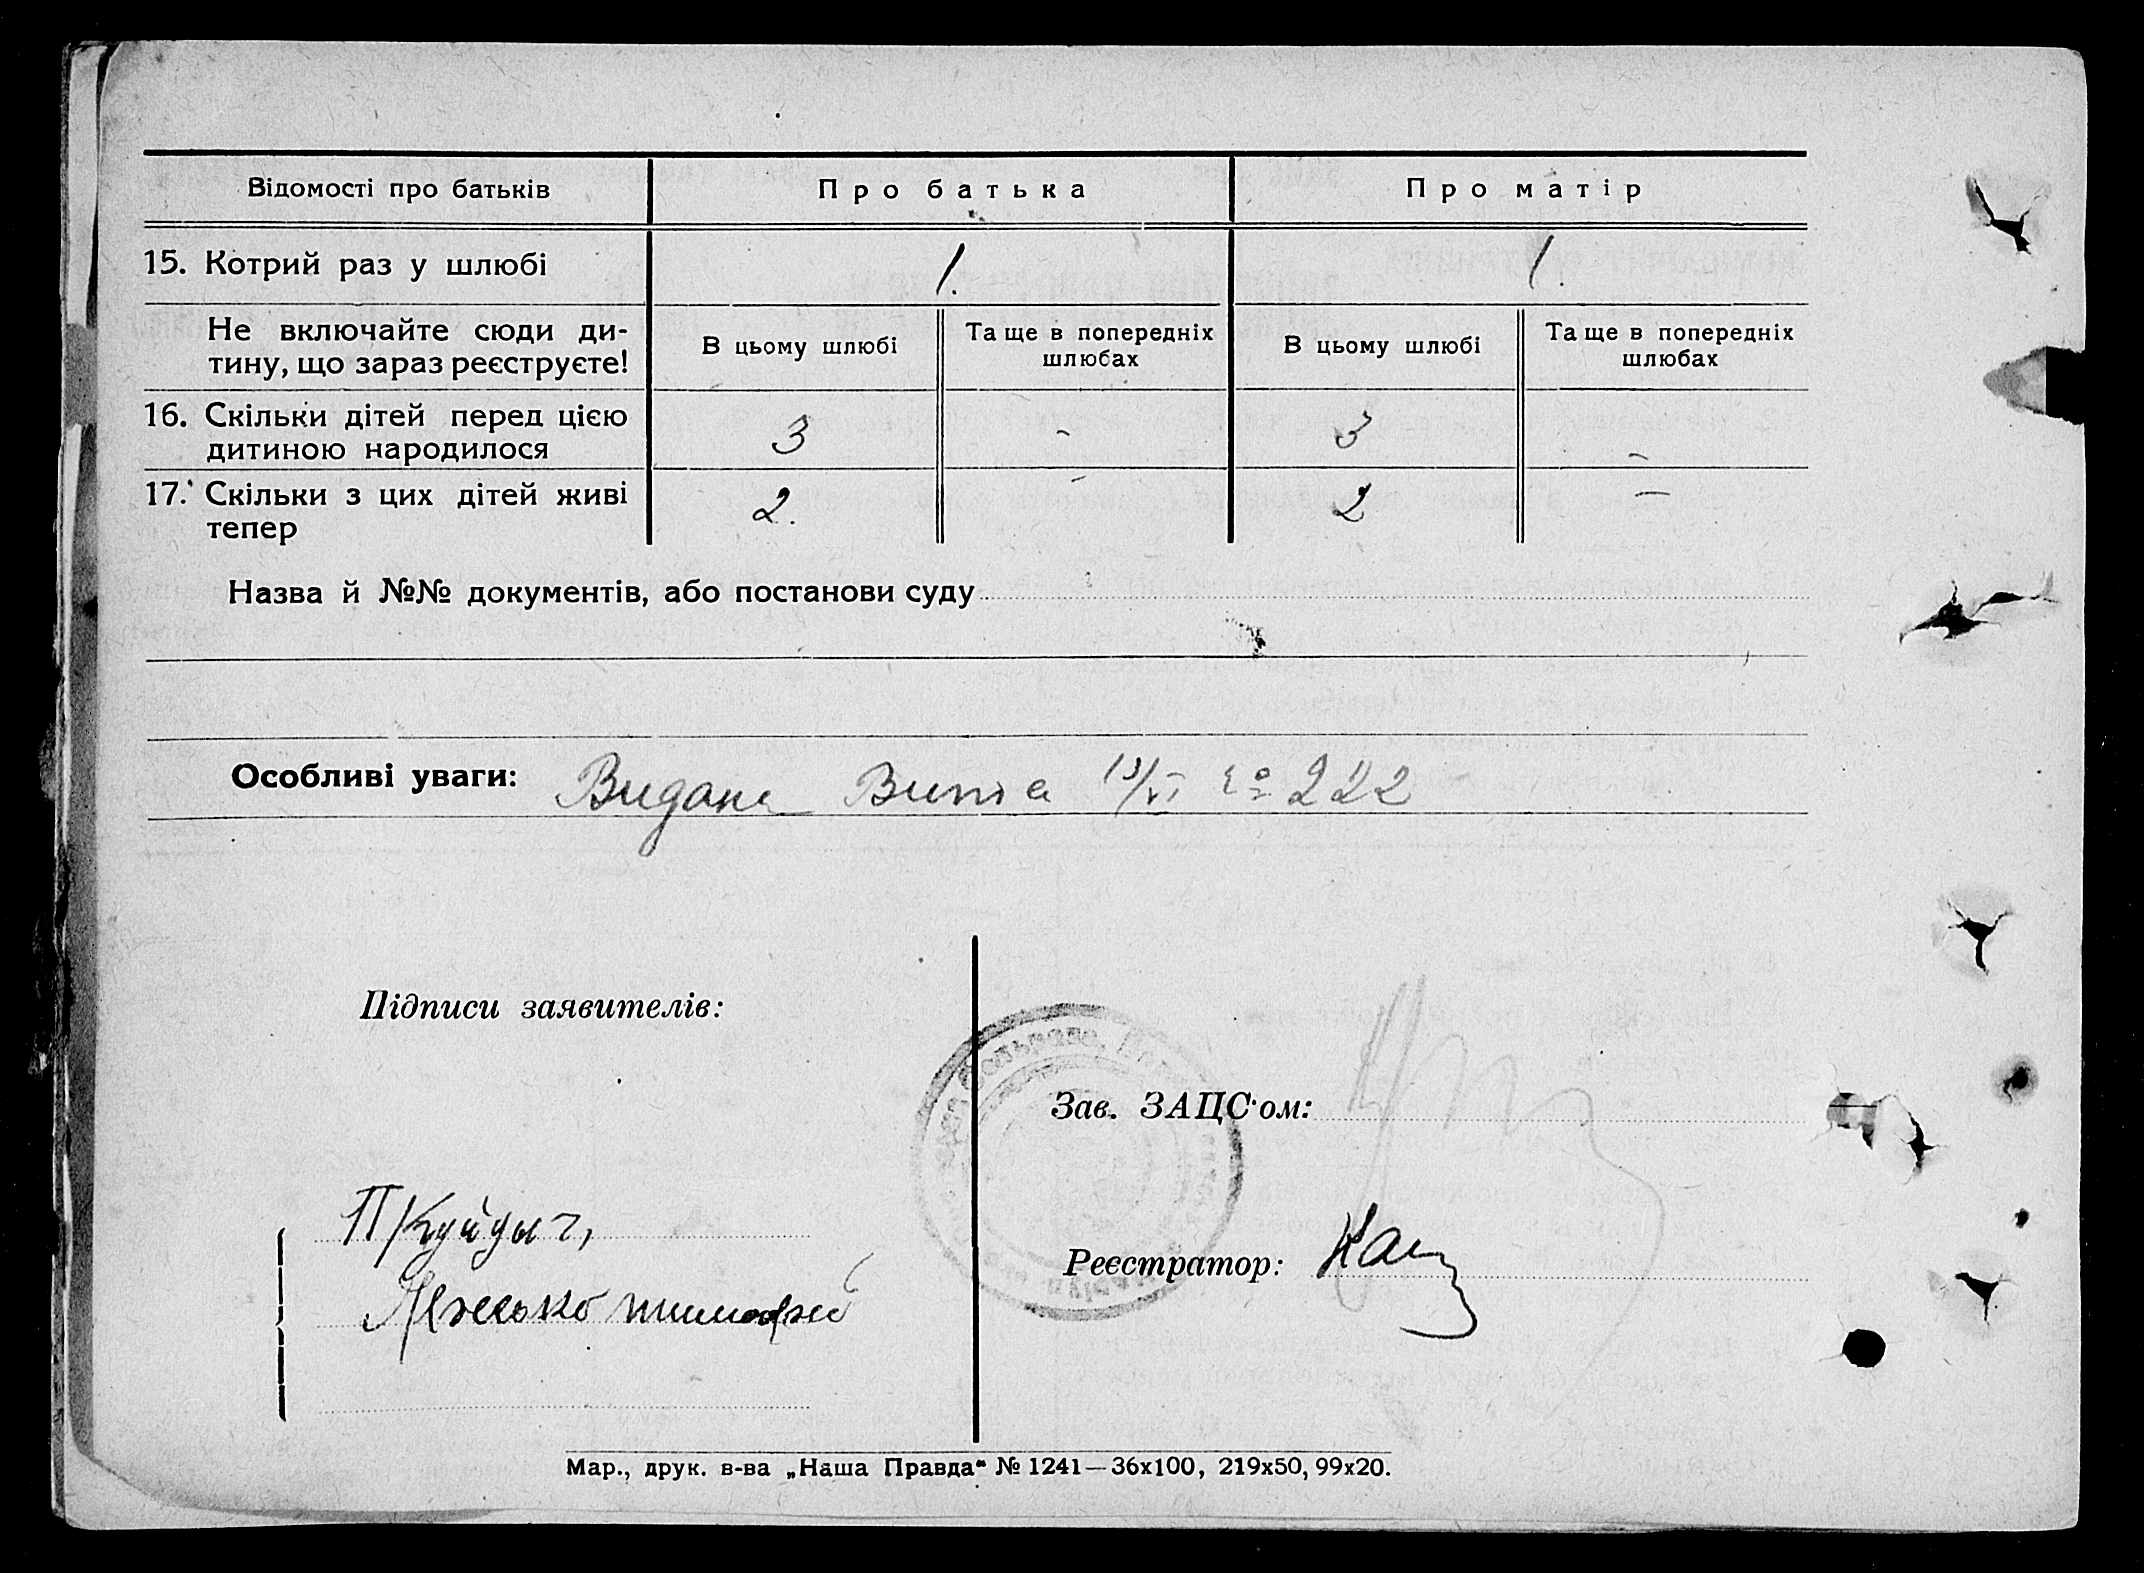 Відомості про батьків Про батька Про матір
15. Котрий раз у шлюбі 1. 1.
Не включайте сюди ди-
тину, що зараз реєструєте!
В цьому шлюбі
Та ще в попередніх
шлюбах
В цьому шлюбі
Та ще в попередніх
шлюбах
16. Скільки дітей перед цією
дитиною народилося
3 - 3 -
17. Скільки з цих дітей живі
тепер
2. - 2 -
Назва й №№ документів, або постанови суду
Особливі уваги: Видана 13/VI № 222
Підписи заявителів:
Зав. ЗАЦС'ом:
Реєстратор:
Мар., друк. в-ва „Наша Правда" № 1241—36х100, 219х50, 99х20.